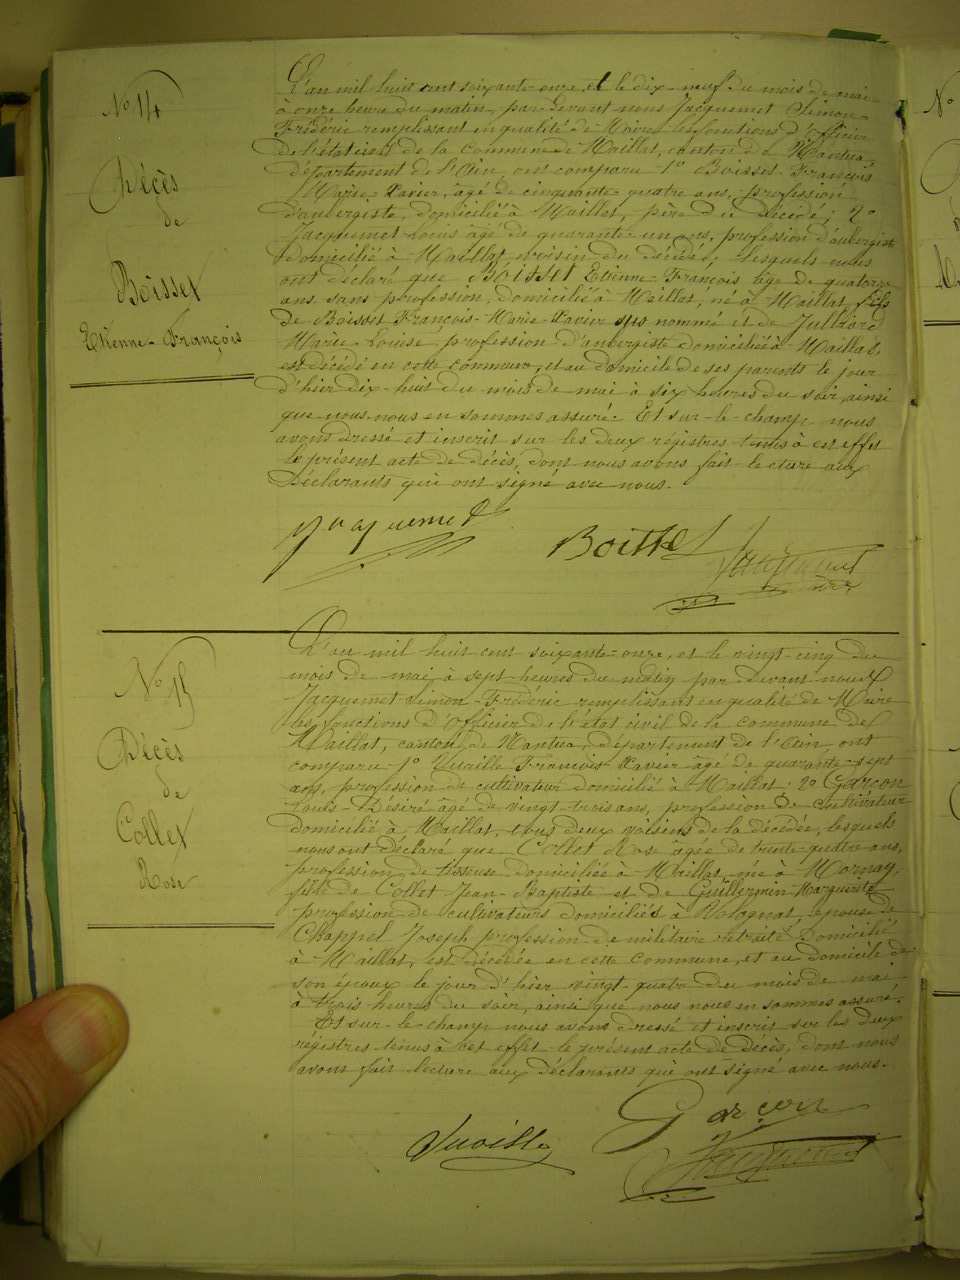 N° 14
Décès
de
Boisset
Etienne-François
L'an mil huit cent soixante-onze, et le dix-neuf du mois de mai
à onze heures du matin, par-devant nous Jacquemet Simon-
Frédéric remplissant en qualité de Maire les fonctions d'Officier
de l'état civil de la commune de Maillat, canton de Nantua,
département de l'Ain, ont comparu 1° Boisset François
Marie-Xavier, âgé de cinquante-quatre ans, profession
d'aubergiste, domicilié à Maillat, père du décédé; 2°
Jacquemet Louis âgé de quarante-un ans, profession d'aubergiste
domicilié à Maillat, voisin du décédé; lesquels nous
ont déclaré que Boisset Etienne-François âgé de quatorze
ans, sans profession, domicilié à Maillat, né à Maillat, fils
de Boisset François-Marie-Xavier sus nommé et de Julliard
Marie-Louise, profession d'aubergiste domiciliée à Maillat,
est décédé en cette commune, et au domicile de ses parents le jour
d'hier dix-huit du mois de mai à six heures du soir, ainsi
que nous nous en sommes assuré. Et sur-le-champ nous
avons dressé et inscrit sur les deux régistres tenus à cet effet
le présent acte de décès, dont nous avons fait lecture aux
Déclarants qui ont signé avec nous.
Jacquemet Boisset Jacquemet
N° 15
Décès
de
Collet
Rose
L'an mil huit cent soixante-onze, et le vingt-cinq du
mois de mai, à sept heures du matin par devant nous
Jacquemet Simon-Frédéric remplissant en qualité de Maire
les fonctions d'Officier de l'état civil de la commune de
Maillat, canton de Nantua, département de l'Ain, ont
comparu 1° François Xavier âgé de quarante-sept
ans, profession de cultivateur domicilié à Maillat; 2° Garçon
Louis-Désiré âgé de vingt-trois ans, profession de cultivateur
domicilié à Maillat, tous deux voisins de la décédée, lesquels
nous ont déclaré que Collet Rose âgée de trente-quatre ans,
profession de tisseuse domiciliée à Maillat, née à Mornay,
fille de Collet Jean-Baptiste et de Guillermin Marguerite
profession de cultivateurs domiciliés à Volognat, épouse de
Chappel Joseph profession de militaire retraité domicilié
à Maillat, est décédée en cette commune, et au domicile de
son époux le jour d'hier vingt-quatre du mois de mai
à trois heures du soir, ainsi que nous nous en sommes assuré.
Et sur-le-champ nous avons dressé et inscrit sur les deux
régistres tenus à cet effet le présent acte de décès, dont nous
avons fait lecture aux déclarants qui ont signé avec nous.
Garçon
Jacquemet